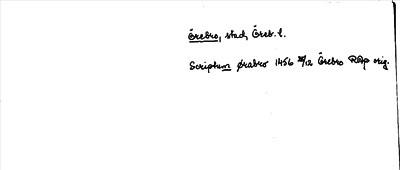 Örebro, stad, Öreb. l.
Scriptum Ørabro 1456 29/12 Örebro RAp orig.